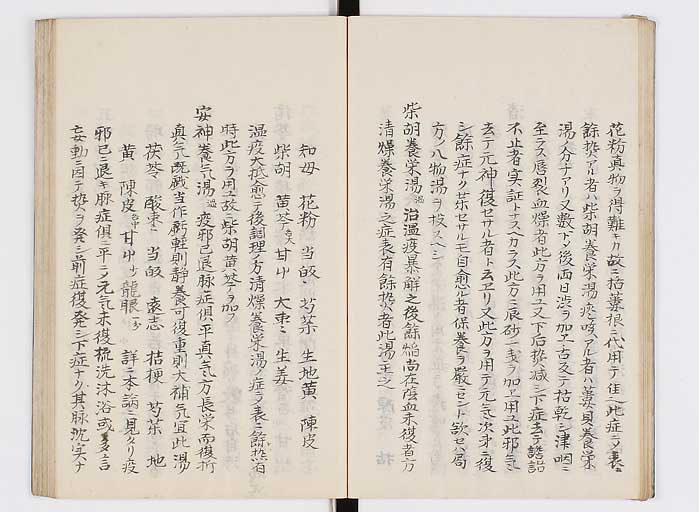 花粉真物ヲ得難キカ故ニ括蔞根ニ代用テ佳也此症ニシテ表ニ
餘熱アル者ハ柴胡養栄湯痰ト咳アル者ハ蔞貝養栄
湯ノ分ナアリ又数下ノ後両日渋ヲ加エ舌反テ枯乾シ津咽ニ
至ラス唇裂血燥者此方ヲ用ユ又下后熱減シ下症去テ譫語
不止者実証トナスヘカラス此方ニ辰砂一戔ヲ加エ用ユ此邪気
去テ元神復セサル者ト云エリ又此方ヲ用テ元気次才ニ復
シ餘症ナク茶セサルモ自愈ル者保養ヲ嚴ニセント欲セハ局
方ノ八物湯ヲ投スヘシ
柴胡養栄湯 温 治温疫暴解之後餘焔尚在陰血未復者方
清燥養栄湯之症表有餘熱者此湯主之
知母 花粉 当皈 芍薬 生地黄 陳皮
柴胡 黄芩 甘艸 大枣 生姜
温疫大抵愈テ後調理ノ方清燥養栄湯ノ症ニシテ表ニ餘熱有
時此方ヲ用ユ故ニ柴胡黄芩ヲ加フ
安神養気湯 温 疫邪已退脉症俱平真気方長栄而復折
真気既戝当作虧軽則静養可復重則大補気宜此湯
茯苓 酸枣 当皈 遠志 桔梗 芍薬 地
黄 陳皮 甘艸 龍眼 詳ニ本論ニ見タリ疫
邪已ニ退キ脉症俱ニ平ニシテ元気未復梳洗沐浴或多言
妄動ニ因テ熱ヲ発シ前症復発シ下症ナク其脉沈実ナ